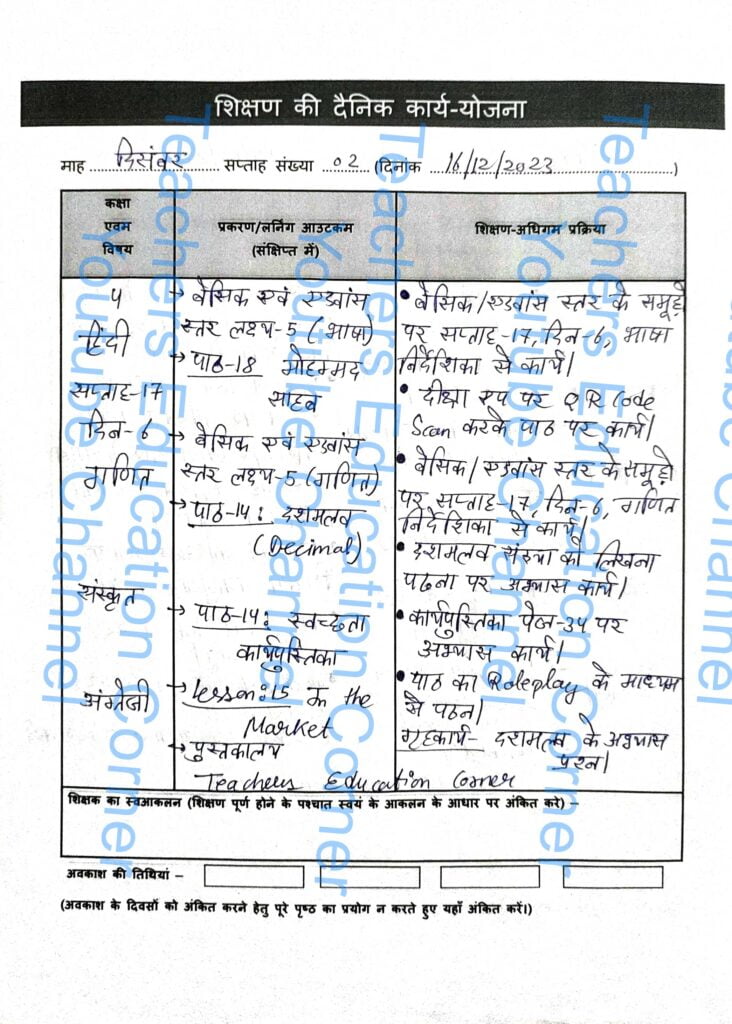 शिक्षण की दैनिक कार्य-योजना
माह दिसंबर सप्ताह संख्या 02 (दिनांक 16/12/2023)
कक्षा
एवम
विषय
प्रकरण/लर्निंग आउटकम
(संक्षिप्त में)
शिक्षण-अधिगम प्रक्रिया
५
हिंदी
सप्ताह-17
दिन-6
गणित
संस्कृत
अंग्रेजी
→ बेसिक एवं एडवांस
स्तर लक्ष्य-5 (भाषा)
→ पाठ-18 मोहम्मद
साहब
→ बेसिक एवं एडवांस
स्तर लक्ष्य-5 (गणित)
→ पाठ-14: दशमलव
(Decimal)
→ पाठ-14: स्वच्छता
कार्यपुस्तिका
→ Lesson:15 In the
Market
→ पुस्तकालय
Teachers Education Corner
• बेसिक/एडवांस स्तर के समूहो
पर सप्ताह-17, दिन-6, भाषा
निर्देशिका से कार्य।
• दीक्षा एप पर QR Code
Scan करके पाठ पर कार्य।
• बेसिक/एडवांस स्तर के समूहो
पर सप्ताह-17, दिन-6, गणित
निर्देशिका से कार्य।
• दशमलव संख्या को लिखना
पढना पर अभ्यास कार्य।
• कार्यपुस्तिका पेज-34 पर
अभ्यास कार्य।
• पाठ का Roleplay के माध्यम
से पठन।
गृहकार्य- दशमलव के अभ्यास
प्रश्न।
शिक्षक का स्वआकलन (शिक्षण पूर्ण होने के पश्चात स्वयं के आकलन के आधार पर अंकित करे) –
अवकाश की तिथियां –
(अवकाश के दिवसों को अंकित करने हेतु पूरे पृष्ठ का प्रयोग न करते हुए यहाँ अंकित करें।)
Teachers Education Corner
Youtube Channel
Teachers Education Corner
Youtube Channel
Teachers Education Corner
Youtube Channel